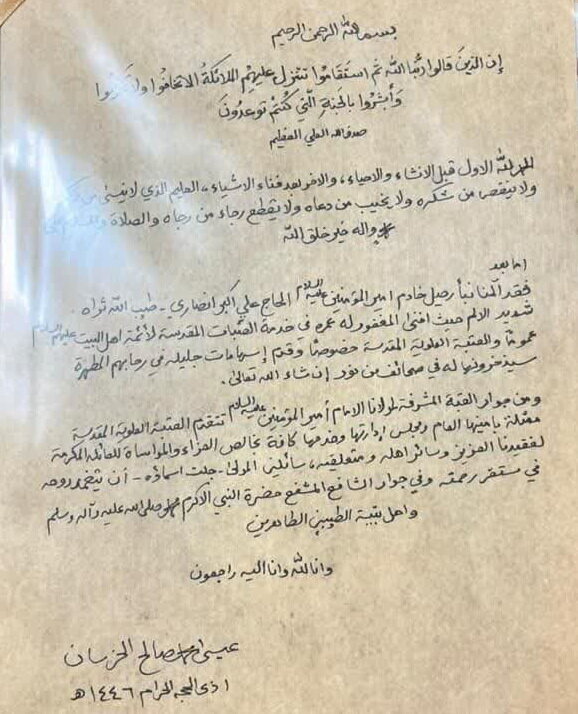 بسم الله الرحمن الرحيم
إن الذين قالوا ربنا الله ثم استقاموا تتنزل عليهم الملائكة الا تخافوا ولا تحزنوا
وأبشروا بالجنة التي كنتم توعدون
صدق الله العلي العظيم
الحمد لله الاول قبل الانشاء والاحياء، والاخر بعد فناء الاشياء، العليم الذي لا ينسى من ذكره
ولا ينقص من شكره ولا يخيب من دعاه ولا يقطع رجاء من رجاه والصلاة والسلام على
محمد واله خير خلق الله
اما بعد
فقد آلمنا نبأ رحيل خادم امير المؤمنين عليه السلام الحاج علي اكبر انصاري - طيب الله ثراه -
شديد الالم حيث افنى المغفور له عمره في خدمة العتبات المقدسة لأئمة اهل البيت عليهم السلام
عموماً والعتبة العلوية المقدسة خصوصاً وقدم إسهامات جليله في رحابهم المطهرة
سيذخرونها له في صحائف من نور إن شاء الله تعالى.
ومن جوار القبة المشرفة لمولانا الامام أمير المؤمنين عليه السلام تتقدم العتبة العلوية المقدسة
ممثلة بامينها العام ومجلس إدارتها وخدمها كافة بخالص العزاء والمواساة للعائلة المكرمة
لفقيدنا العزيز وسائر اهله ومتعلقيه، سائلين المولى - جلت اسماؤه - أن يتغمد روحه
في مستقر رحمته وفي جوار الشافع المشفع حضرة النبي الاكرم محمد صلى الله عليه وآله وسلم
واهل بيته الطيبين الطاهرين
وانا لله وانا اليه راجعون
عيسى احمد صالح الخرسان
١ ذي الحجه الحرام ١٤٤٦ هـ